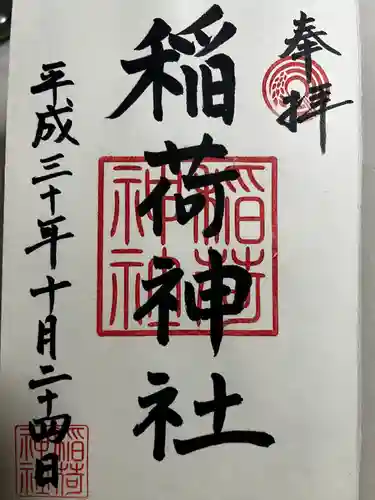 奉拝
稲荷神社
稲荷
神社
平成三十年十月二十四日
稲荷
神社